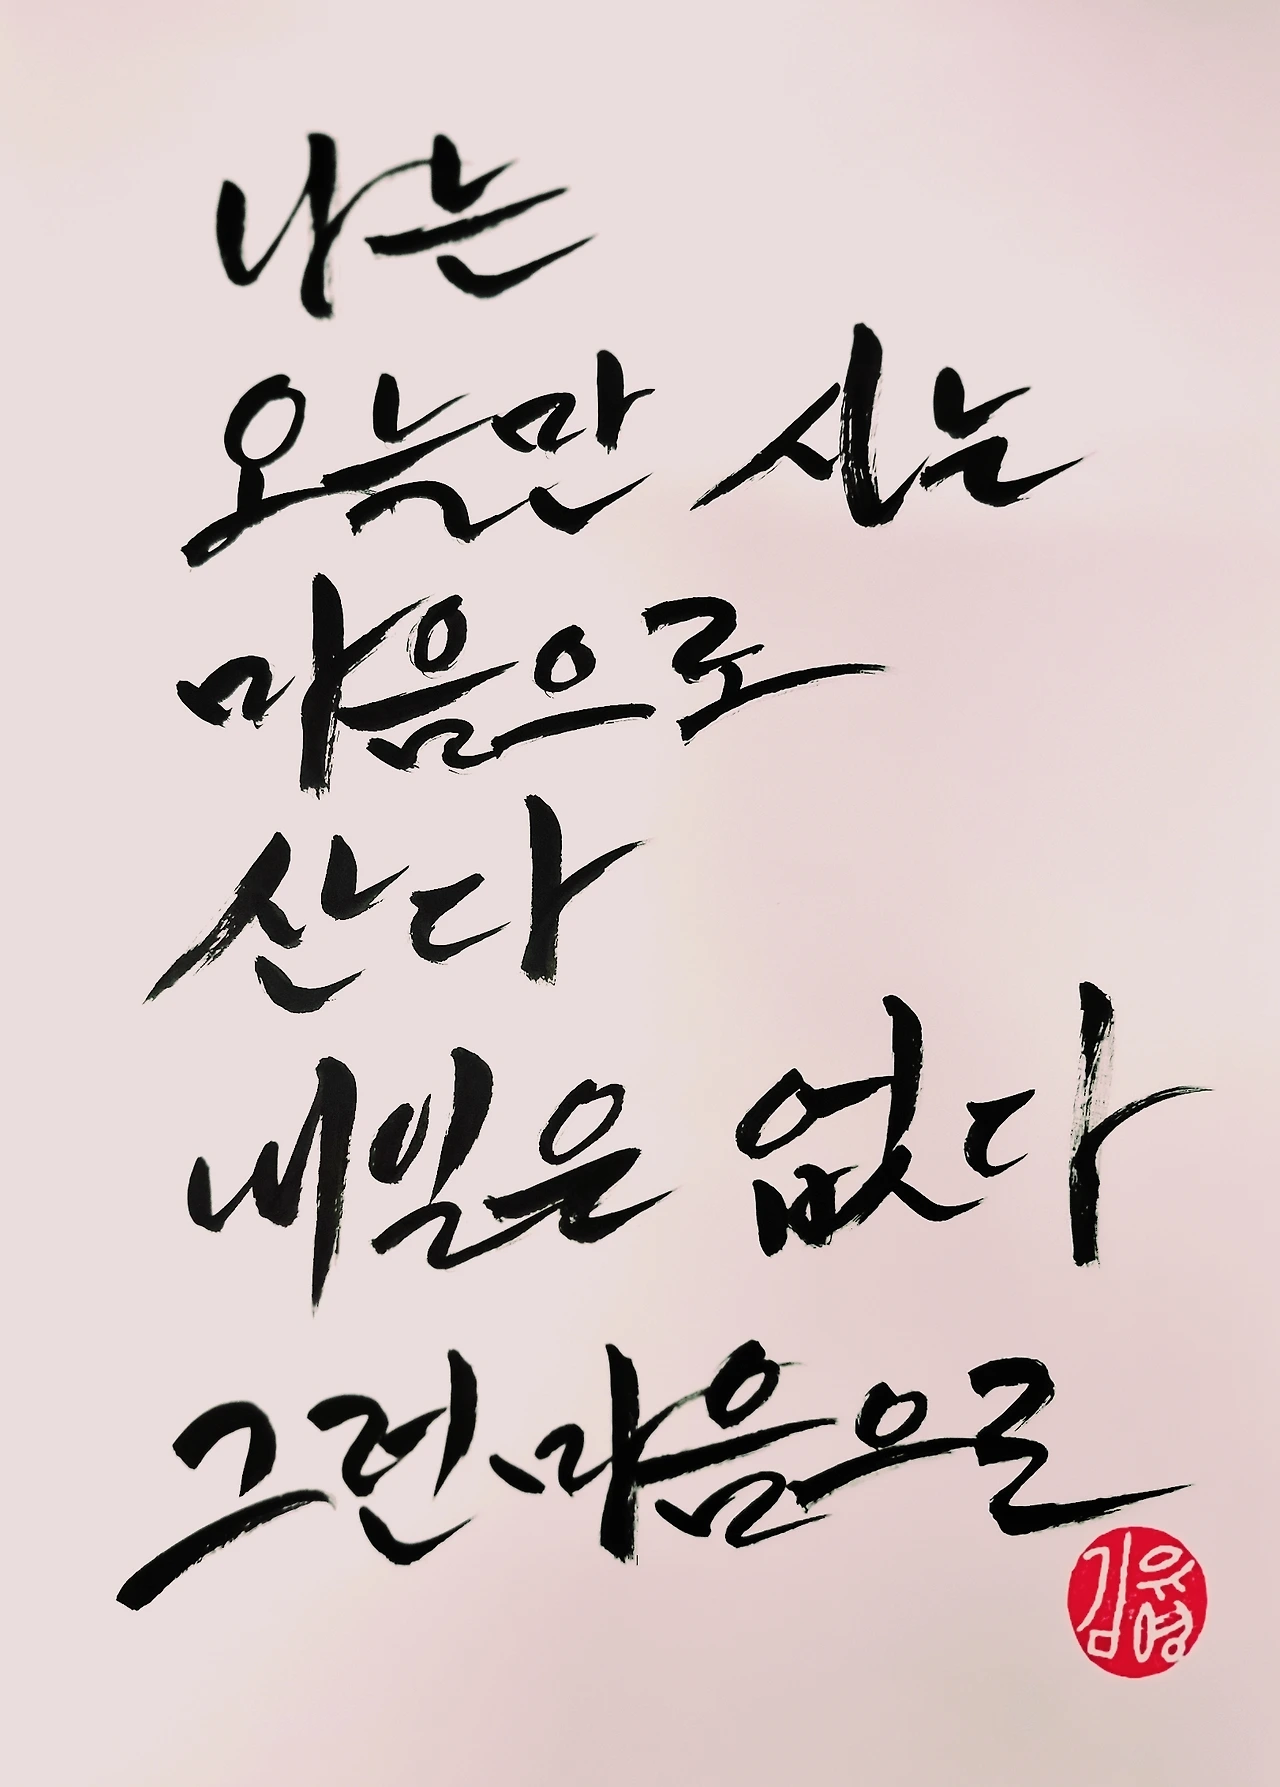 나는
오늘만 사는
마음으로
산다
내일은 없다
그런 마음으로
김유영